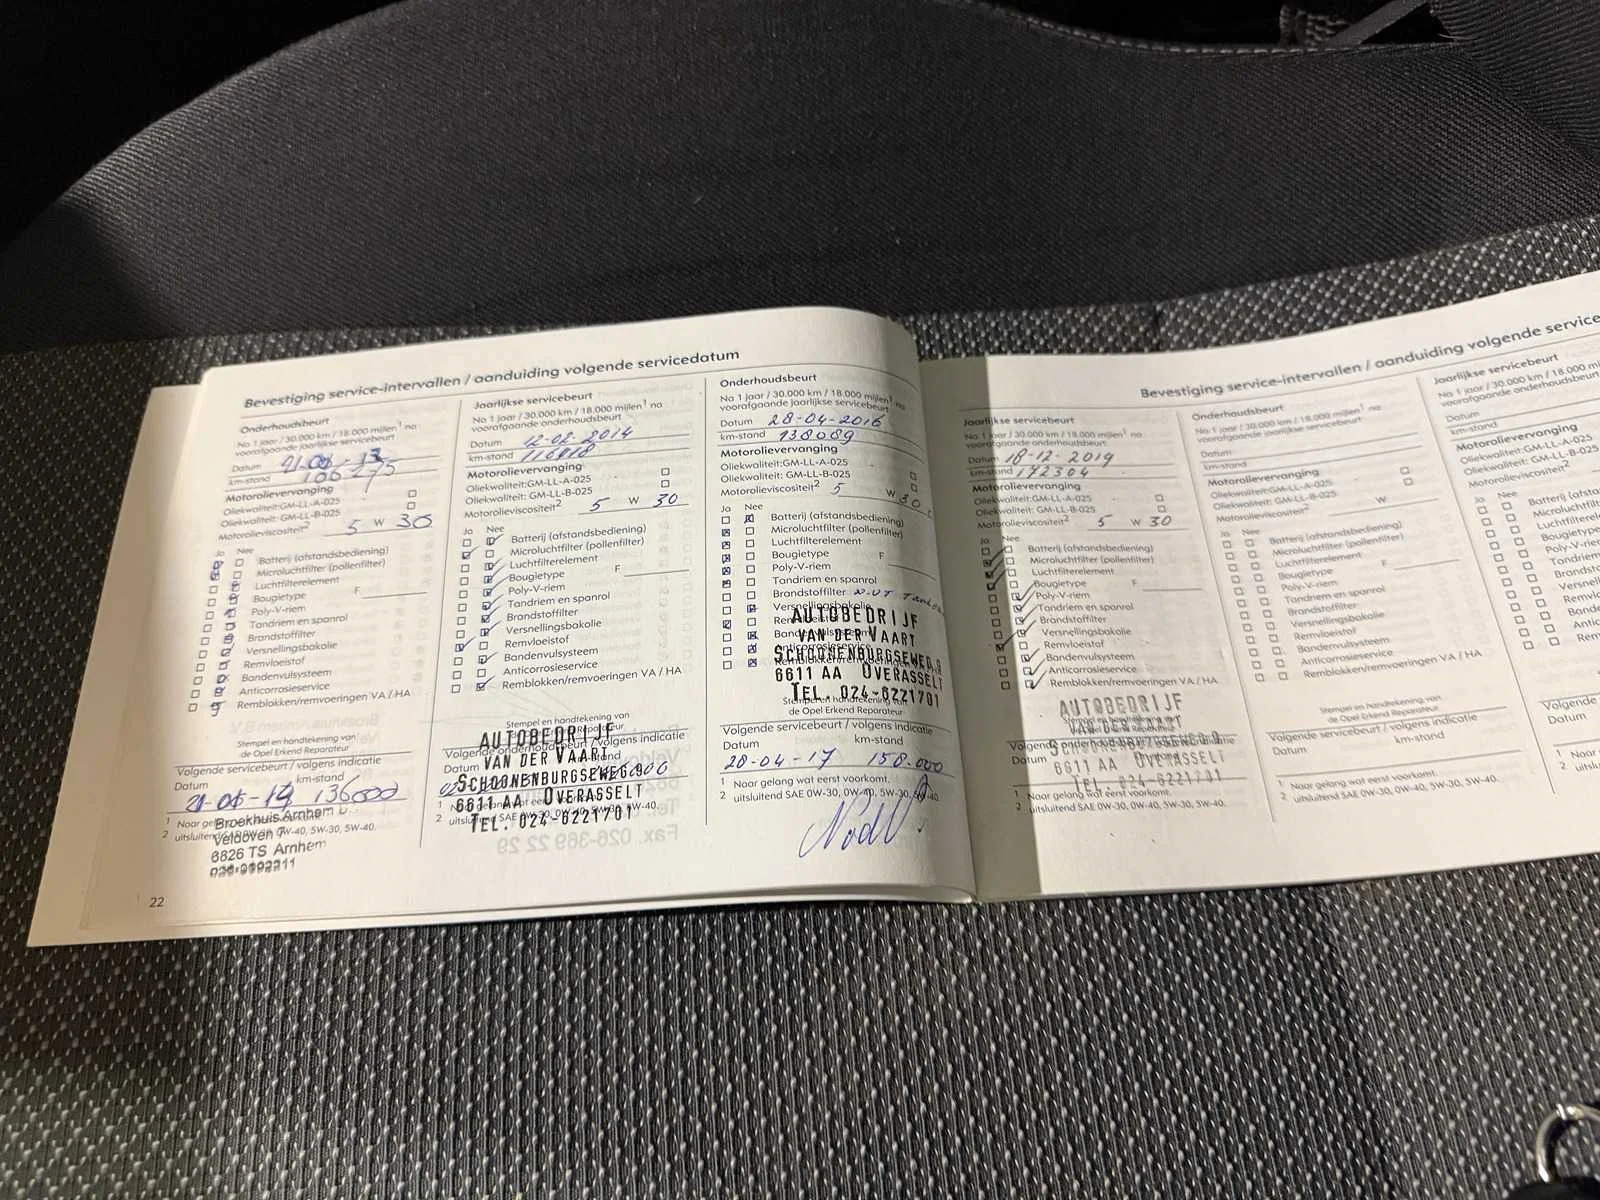 Bevestiging service-intervallen / aanduiding volgende servicedatum
Onderhoudsbeurt
Na 1 jaar / 30.000 km / 18.000 mijlen¹ na
voorafgaande jaarlijkse servicebeurt
Datum
km-stand
Motorolievervanging
Oliekwaliteit: GM-LL-A-025
Oliekwaliteit: GM-LL-B-025
Motorolieviscositeit² 5 W 30
Ja Nee
Batterij (afstandsbediening)
Microluchtfilter (pollenfilter)
Luchtfilterelement
Bougietype F
Poly-V-riem
Tandriem en spanrol
Brandstoffilter
Versnellingsbakolie
Remvloeistof
Bandenvulsysteem
Anticorrosieservice
Remblokken/remvoeringen VA / HA
Stempel en handtekening van
de Opel Erkend Reparateur
Volgende servicebeurt / volgens indicatie
Datum km-stand
136000
¹ Naar
² uitsluitend SAE 0W-30, 0W-40, 5W-30, 5W-40.
Broekhuis Arnhem
Veldoven 7
6826 TS Arnhem
22
Jaarlijkse servicebeurt
Na 1 jaar / 30.000 km / 18.000 mijlen¹ na
voorafgaande onderhoudsbeurt
Datum 12-02-2014
km-stand
Motorolievervanging
Oliekwaliteit: GM-LL-A-025
Oliekwaliteit: GM-LL-B-025
Motorolieviscositeit² 5 W 30
Ja Nee
Batterij (afstandsbediening)
Microluchtfilter (pollenfilter)
Luchtfilterelement
Bougietype F
Poly-V-riem
Tandriem en spanrol
Brandstoffilter
Versnellingsbakolie
Remvloeistof
Bandenvulsysteem
Anticorrosieservice
Remblokken/remvoeringen VA / HA
Stempel en handtekening van
AUTOBEDRIJF
VAN DER VAART
SCHOONENBURGSEWEG 9
6611 AA OVERASSELT
TEL. 024-6221701
Volgende onderhoudsbeurt / volgens indicatie
Datum
Onderhoudsbeurt
Na 1 jaar / 30.000 km / 18.000 mijlen¹ na
voorafgaande jaarlijkse servicebeurt
Datum 28-04-2016
km-stand 138089
Motorolievervanging
Oliekwaliteit: GM-LL-A-025
Oliekwaliteit: GM-LL-B-025
Motorolieviscositeit² 5 W 30
Ja Nee
Batterij (afstandsbediening)
Microluchtfilter (pollenfilter)
Luchtfilterelement
Bougietype F
Poly-V-riem
Tandriem en spanrol
Brandstoffilter
Versnellingsbakolie
AUTOBEDRIJF
VAN DER VAART
SCHOONENBURGSEWEG 9
6611 AA OVERASSELT
TEL. 024-6221701
Stempel en handtekening van
de Opel Erkend Reparateur
Volgende servicebeurt / volgens indicatie
Datum km-stand
28-04-17 158.000
¹ Naar gelang wat eerst voorkomt.
² uitsluitend SAE 0W-30, 0W-40, 5W-30, 5W-40.
Bevestiging service-intervallen / aanduiding volgende service
Jaarlijkse servicebeurt
Na 1 jaar / 30.000 km / 18.000 mijlen¹ na
voorafgaande onderhoudsbeurt
Datum 18-12-2019
km-stand 172304
Motorolievervanging
Oliekwaliteit: GM-LL-A-025
Oliekwaliteit: GM-LL-B-025
Motorolieviscositeit² 5 W 30
Ja Nee
Batterij (afstandsbediening)
Microluchtfilter (pollenfilter)
Luchtfilterelement
Bougietype F
Poly-V-riem
Tandriem en spanrol
Brandstoffilter
Versnellingsbakolie
Remvloeistof
Bandenvulsysteem
Anticorrosieservice
Remblokken/remvoeringen VA / HA
AUTOBEDRIJF
VAN DER VAART
SCHOONENBURGSEWEG 9
6611 AA OVERASSELT
TEL. 024-6221701
Datum
¹ Naar gelang wat eerst voorkomt.
² uitsluitend SAE 0W-30, 0W-40, 5W-30, 5W-40.
Onderhoudsbeurt
Na 1 jaar / 30.000 km / 18.000 mijlen¹ na
voorafgaande jaarlijkse servicebeurt
Datum
km-stand
Motorolievervanging
Oliekwaliteit: GM-LL-A-025
Oliekwaliteit: GM-LL-B-025
Motorolieviscositeit² W
Ja Nee
Batterij (afstandsbediening)
Microluchtfilter (pollenfilter)
Luchtfilterelement
Bougietype F
Poly-V-riem
Tandriem en spanrol
Brandstoffilter
Versnellingsbakolie
Remvloeistof
Bandenvulsysteem
Anticorrosieservice
Remblokken/remvoeringen VA / HA
Stempel en handtekening van
de Opel Erkend Reparateur
Volgende servicebeurt / volgens indicatie
Datum km-stand
¹ Naar gelang wat eerst voorkomt.
² uitsluitend SAE 0W-30, 0W-40, 5W-30, 5W-40.
Jaarlijkse servicebeurt
Na 1 jaar / 30.000 km / 18.000
voorafgaande onderhoudsbeurt
Datum
km-stand
Motorolievervanging
Oliekwaliteit: GM-LL-A-025
Oliekwaliteit: GM-LL-B-025
Motorolieviscositeit²
Ja Nee
Batterij (afsta
Microluchtf
Luchtfilter
Bougiety
Poly-V-ri
Tandrie
Brandst
Versnel
Remvl
Bande
Antic
Rem
Volgend
Datum
¹ Naar
² uitslu